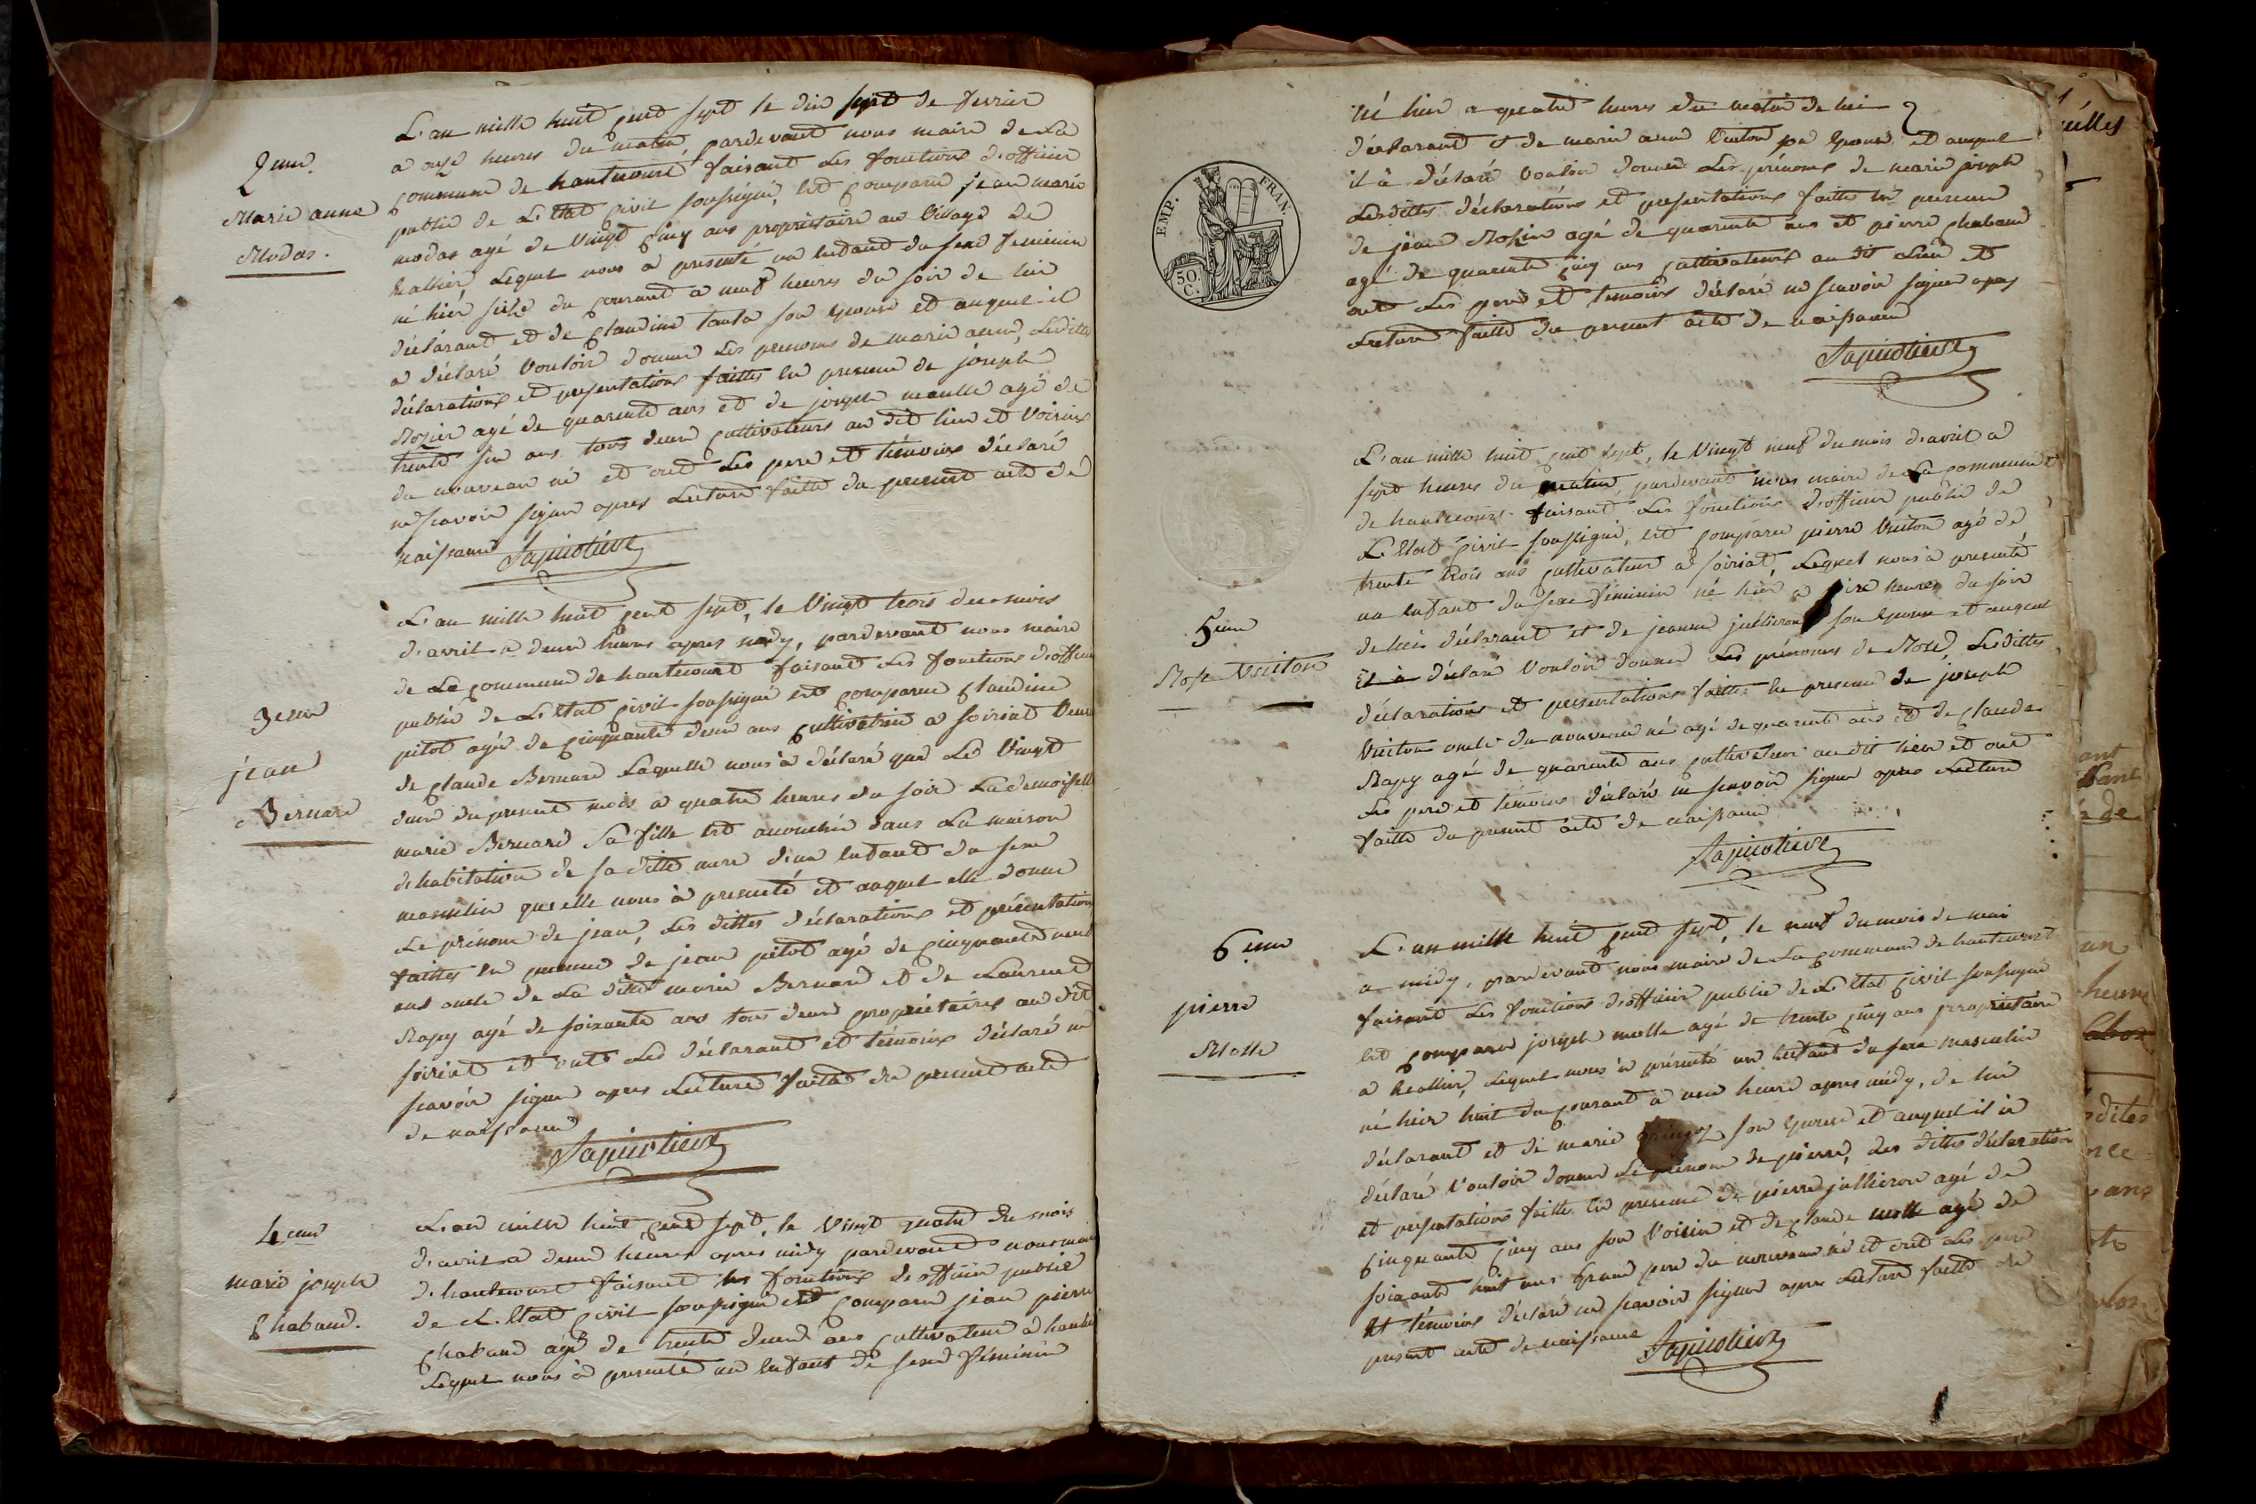 2eme
Marie anne
Modas.
L'an mille huit cent sept le dix sept de fevrier
a onze heures du matin, pardevant nous maire de La
commune de hautecourt faisant Les fonctions d'officier
public de L'Etat civil soussigné, est comparu jean marie
modas agé de vingt cinq ans proprietaire au village de
Lequel nous a presenté un enfant du sexe feminin
né hier seize du courant a neuf heures du soir de lui
déclarant et de Claudine son epouse et auquel il
a déclaré vouloir donner Les prenoms de marie anne, Lesdittes
déclarations et presentations faittes en presence de joseph
Mozier agé de quarente ans et de joseph agé de
trente six ans tous deux cultivateurs au dit lieu et voisins
du nouveau né et ont Les pere et témoins déclaré
ne scavoir signer apres Lecture faitte du present acte de
naissance
3eme
jean
Bernard
L'an mille huit cent sept, le vingt trois du mois
d'avril a deux heures apres midy, pardevant nous maire
de La commune de hautecourt faisant Les fonctions d'officier
public de L'Etat civil soussigné est comparue Claudine
pitot agée de cinquante deux ans cultivatrice a soiriat veuve
de Claude Bernard Laquelle nous à déclaré que Le vingt
deux du present mois a quatre heures du soir La demoiselle
marie Bernard Sa fille est accouchée dans La maison
d'habitation de sa ditte mere d'un enfant du sexe
masculin qu'elle nous à presenté et auquel elle donne
Le prénom de jean, Les dittes déclarations et présentations
faittes en presence de jean pitot agé de cinquante neuf
ans oncle de La ditte marie Bernard et de Laurent
Rapy agé de soixante ans tous deux propriétaires au dit
soiriat et ont Les déclarant et témoins déclaré ne
scavoir signer apres Lecture faitte du present acte
de naissance
4eme
marie joseph
Chabaud.
L'an mille huit cent sept, le vingt quatre du mois
d'avril a deux heures apres midy pardevant nous maire
d'hautecourt faisant les fonctions d'officier public
de L'Etat civil soussigné est comparu jean pierre
Chabaud agé de trente deux ans cultivateur à
Lequel nous à presenté un enfant de sexe féminin
EMP. FRAN.
50 C.
né hier a quatre heures du matin de lui
déclarant et de marie anne Vuiton sa epouse et auquel
il à déclaré vouloir donner Les prénoms de marie joseph
Lesdittes déclarations et presentations faittes en presence
de jean Mozier agé de quarente ans et pierre Chabaud
agé de quarente cinq ans cultivateurs au dit Lieu et
ont Les pere et temoins déclaré ne scavoir signer apres
Lecture faitte du present acte de naissance
5eme
Rose Vuiton
L'an mille huit cent sept, le vingt neuf du mois d'avril a
sept heures du matin, pardevant nous maire de La commune
de hautecourt faisant Les fonctions d'officier public de
L'Etat civil soussigné, est comparu pierre Vuiton agé de
trente trois ans cultivateur a soiriat, Lequel nous à presenté
un enfant du sexe féminin né hier a heures du soir
de lui déclarant et de jeanne jullieron son epouse et auquel
il à déclaré vouloir donner Les prénoms de Rose, Lesdittes
déclarations et presentations faittes en presence de joseph
Vuiton oncle du nouveau né agé de quarente ans et de Claude
Rapy agé de quarente ans cultivateurs au dit lieu et ont
Les pere et témoins déclaré ne scavoir signer apres Lecture
faitte du present acte de naissance
6eme
pierre
Molle
L'an mille huit cent sept, le neuf du mois de mai
a midy, pardevant nous maire de La commune de hautecourt
faisant Les fonctions d'officier public de L'Etat civil soussigné
est comparu joseph molle agé de trente cinq ans propriétaire
a Lequel nous à présenté un enfant du sexe masculin
né hier huit du courant a une heure apres midy, de lui
déclarant et de marie son epouse et auquel il à
déclaré vouloir donner Le prénom de pierre, Les dittes déclarations
et presentations faittes en presence de pierre jullieron agé de
cinquante cinq ans son voisin et de Claude molle agé de
soixante huit ans grand pere du nouveau né et ont Les pere
et témoins déclaré ne scavoir signer apres Lecture faitte du
present acte de naissance